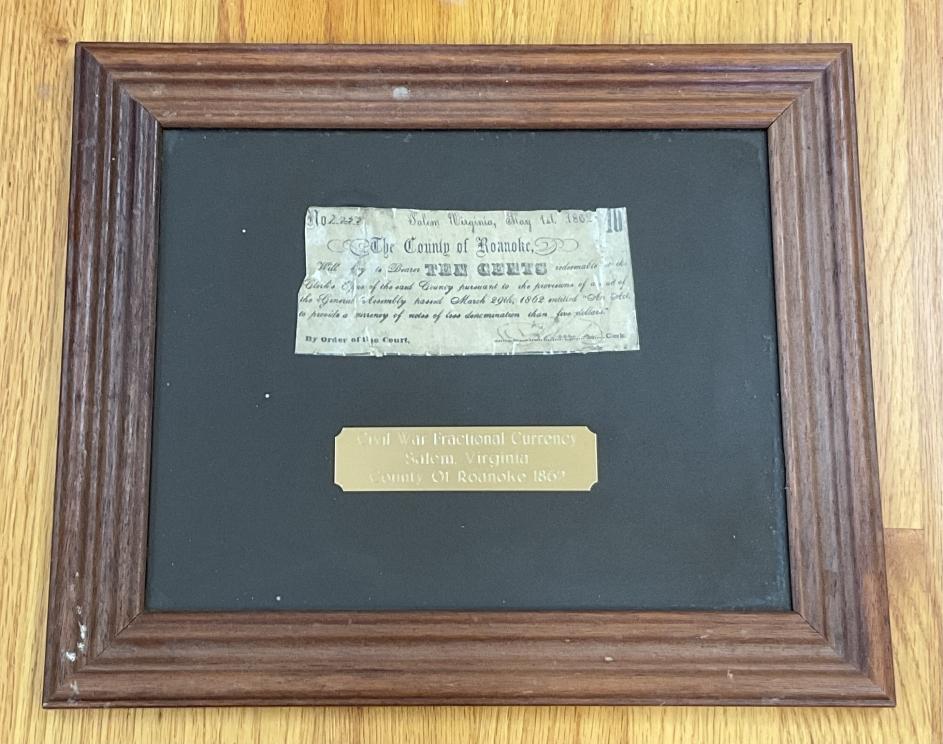 No 2.
Salem Virginia, May 1st. 1862 10
The County of Roanoke,
Will to Bearer TEN CENTS redeemable the
Clerk's of the said County pursuant to the provisions of of
the General Assembly passed March 29th, 1862 entitled "An Act
to provide a currency of notes of less denomination than five dollars."
By Order of the Court, Clerk
Civil War Fractional Currency
Salem, Virginia
County Of Roanoke 1862